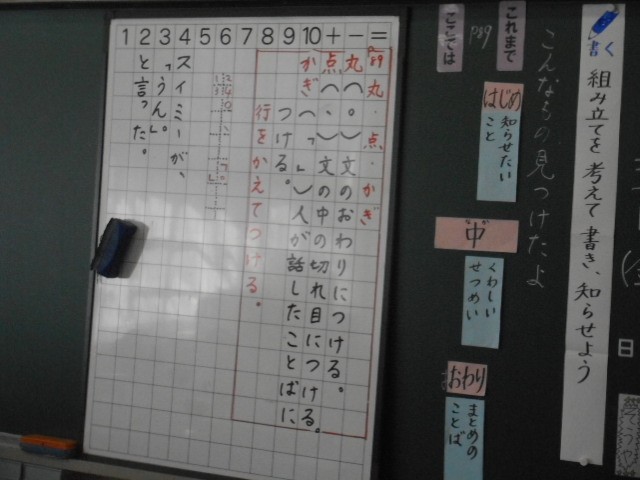 書く 組み立てを考えて書き、知らせよう
こんなもの見つけたよ
これまで
P89
ここでは
はじめ
知らせたい
こと
中
くわしい
せつめい
おわり
まとめの
ことば
日
1 2 3 4 5 6 7 8 9 10 十 一 二
P89 丸・点・かぎ
丸(。)文のおわりにつける。
点(、)文の中の切れ目につける。
かぎ(「」)人が話したことばに
つける。
行をかえてつける。
スイミーが、
「うん。」
と言った。